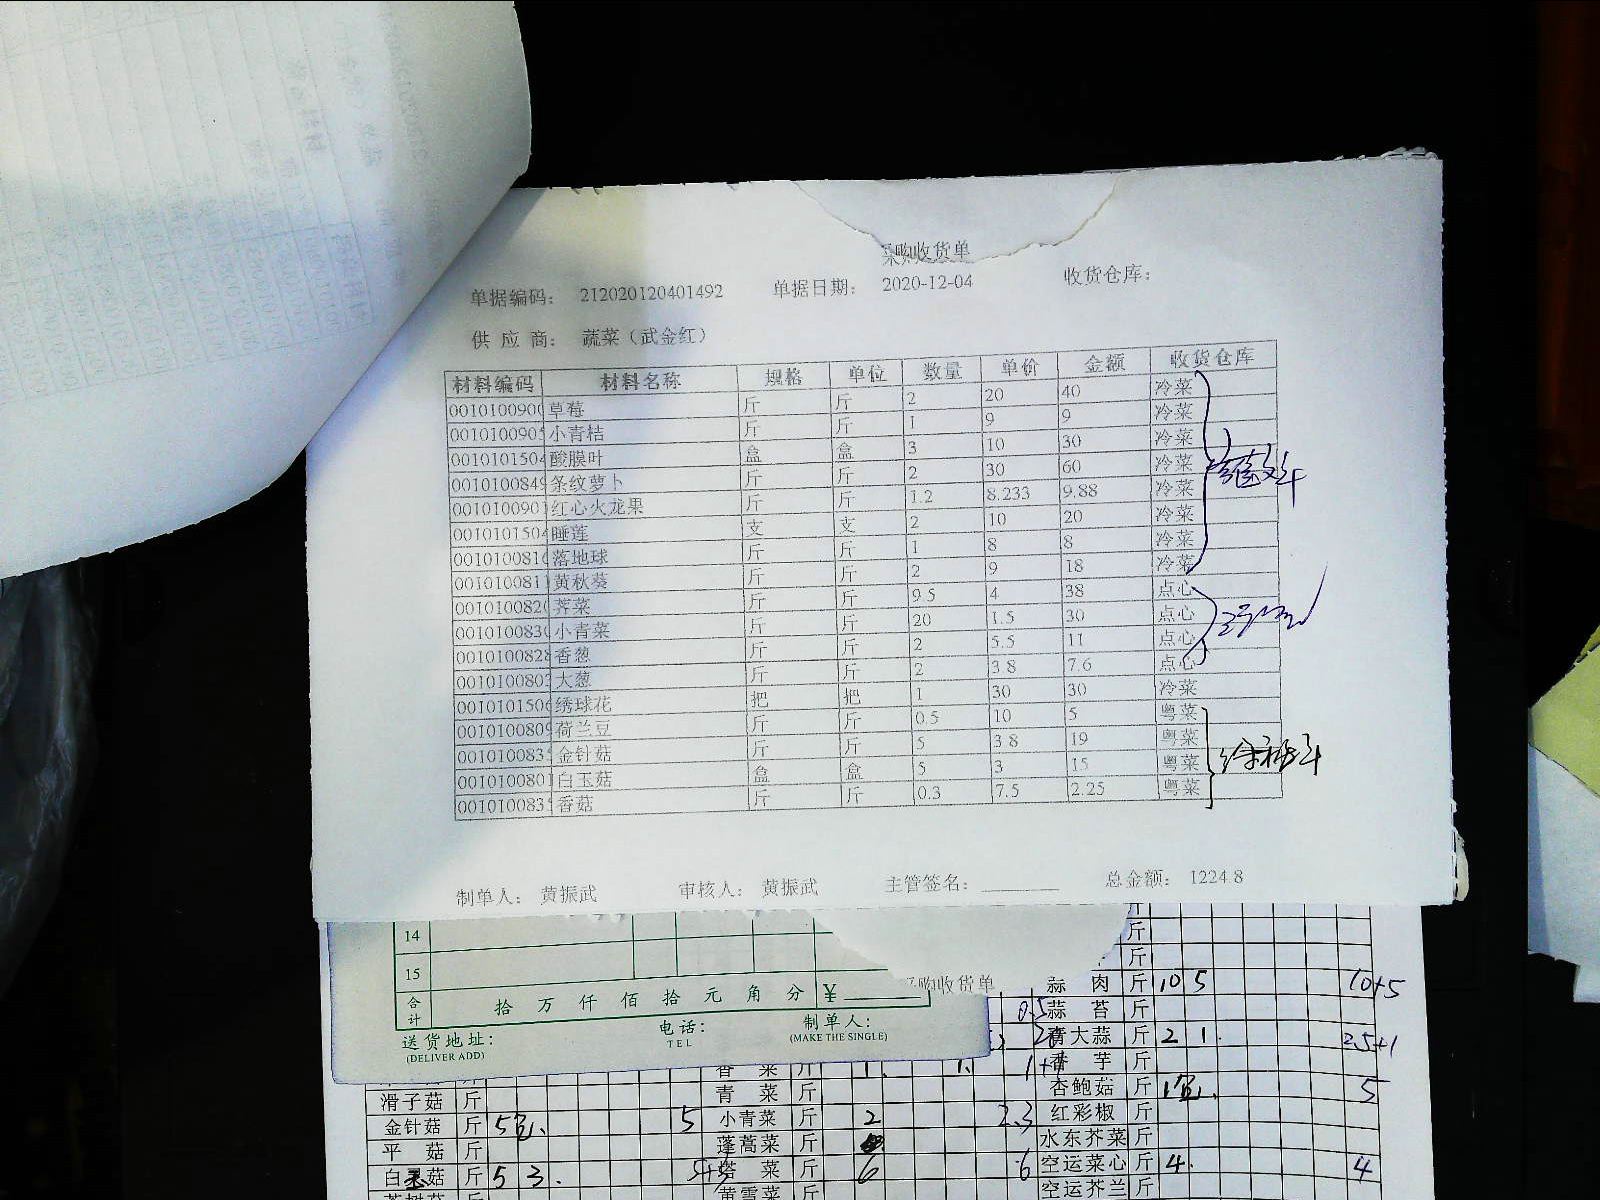 购收货单
单据编码： 212020120401492 单据日期： 2020-12-04 收货仓库：
供 应 商： 蔬菜（武金红）
材料编码 材料名称 规格 单位 数量 单价 金额 收货仓库
0010100900 草莓 斤 斤 2 20 40 冷菜
001010090 小青桔 斤 斤 1 9 9 冷菜
001010150 酸膜叶 盒 盒 3 10 30 冷菜
001010084 条纹萝卜 斤 斤 2 30 60 冷菜
001010090 红心火龙果 斤 斤 1.2 8.233 9.88 冷菜
001010150 睡莲 支 支 2 10 20 冷菜
001010081 落地球 斤 斤 1 8 8 冷菜
001010081 黄秋葵 斤 斤 2 9 18 冷菜
001010082 荠菜 斤 斤 9.5 4 38 点心
001010083 小青菜 斤 斤 20 1.5 30 点心
001010082 香葱 斤 斤 2 5.5 11 点心
001010080 大葱 斤 斤 2 3.8 7.6 点心
001010150 绣球花 把 把 1 30 30 冷菜
001010080 荷兰豆 斤 斤 0.5 10 5 粤菜
001010083 金针菇 斤 斤 5 3.8 19 粤菜
001010080 白玉菇 盒 盒 5 3 15 粤菜
001010083 香菇 斤 斤 0.3 7.5 2.25 粤菜
制单人： 黄振武 审核人： 黄振武 主管签名： 总金额： 1224.8
14
15
合计 拾 万 仟 佰 拾 元 角 分 ¥
送货地址：
(DELIVER ADD)
电话：
TEL
制单人：
(MAKE THE SINGLE)
购收货单
斤
斤
蒜 肉 斤 10 5 10+5
蒜 苔 斤
青大蒜 斤 2 1. 25+1
香 菜 斤 1. 1. 香 芋 斤
滑子菇 斤 青 菜 斤 杏鲍菇 斤 5
金针菇 斤 5 5 小青菜 斤 2 2.3 红彩椒 斤
平 菇 斤 蓬蒿菜 斤 水东芥菜 斤
白玉菇 斤 5 3. 塔 菜 斤 6 6 空运菜心 斤 4. 4
斤 黄雪菜 斤 空运芥兰 斤